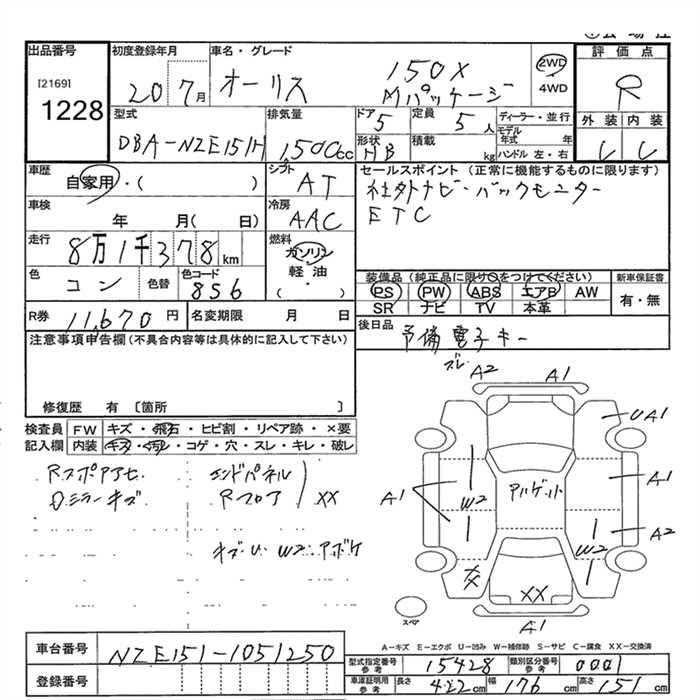 出品番号
[2169]
1228
初度登録年月
20 7月
車名・グレード
オーリス 150X
Mパッケージ
2WD
4WD
評価点
R
外装 内装
型式
DBA-NZE151H
排気量
1,500cc
ドア
5
定員
5人
形状
HB
積載
kg
ディーラー・並行
モデル年式 年
ハンドル 左・右
車歴
自家用・( )
シフト
AT
車検
年 月( 日)
冷房
AAC
走行
8万1千378km
燃料
ガソリン
軽油・
( )
色
コン
色替
色コード
856
R券
11,670円
名変期限 月 日
セールスポイント(正常に機能するものに限ります)
社外ナビ・バックモニター
ETC
装備品(純正品に限り○をつけてください)
PS PW ABS エアB AW
SR ナビ TV 本革
新車保証書
有・無
後日品
予備電子キー
注意事項申告欄(不具合内容等は具体的に記入して下さい)
修復歴 有 〔箇所 〕
検査員記入欄
FW キズ・飛石・ヒビ割・リペア跡・×要
内装 キズ・汚レ・コゲ・穴・スレ・キレ・破レ
Rスポアセ
Dミラーキズ
エンドパネル
Rフロア
XX
キズU W2 アボケ
ズレ
A2 A1
UA1
A1 W2
A1
A2
W2
XX
A1
スペア
A-キズ E-エクボ U-凹み W-補修跡 S-サビ C-腐食 XX-交換済
車台番号
NZE151-1051250
登録番号
型式指定番号 参考
15428
類別区分番号 参考
0001
車庫証明用 参考
長さ 422cm
幅 176cm
高さ 151cm